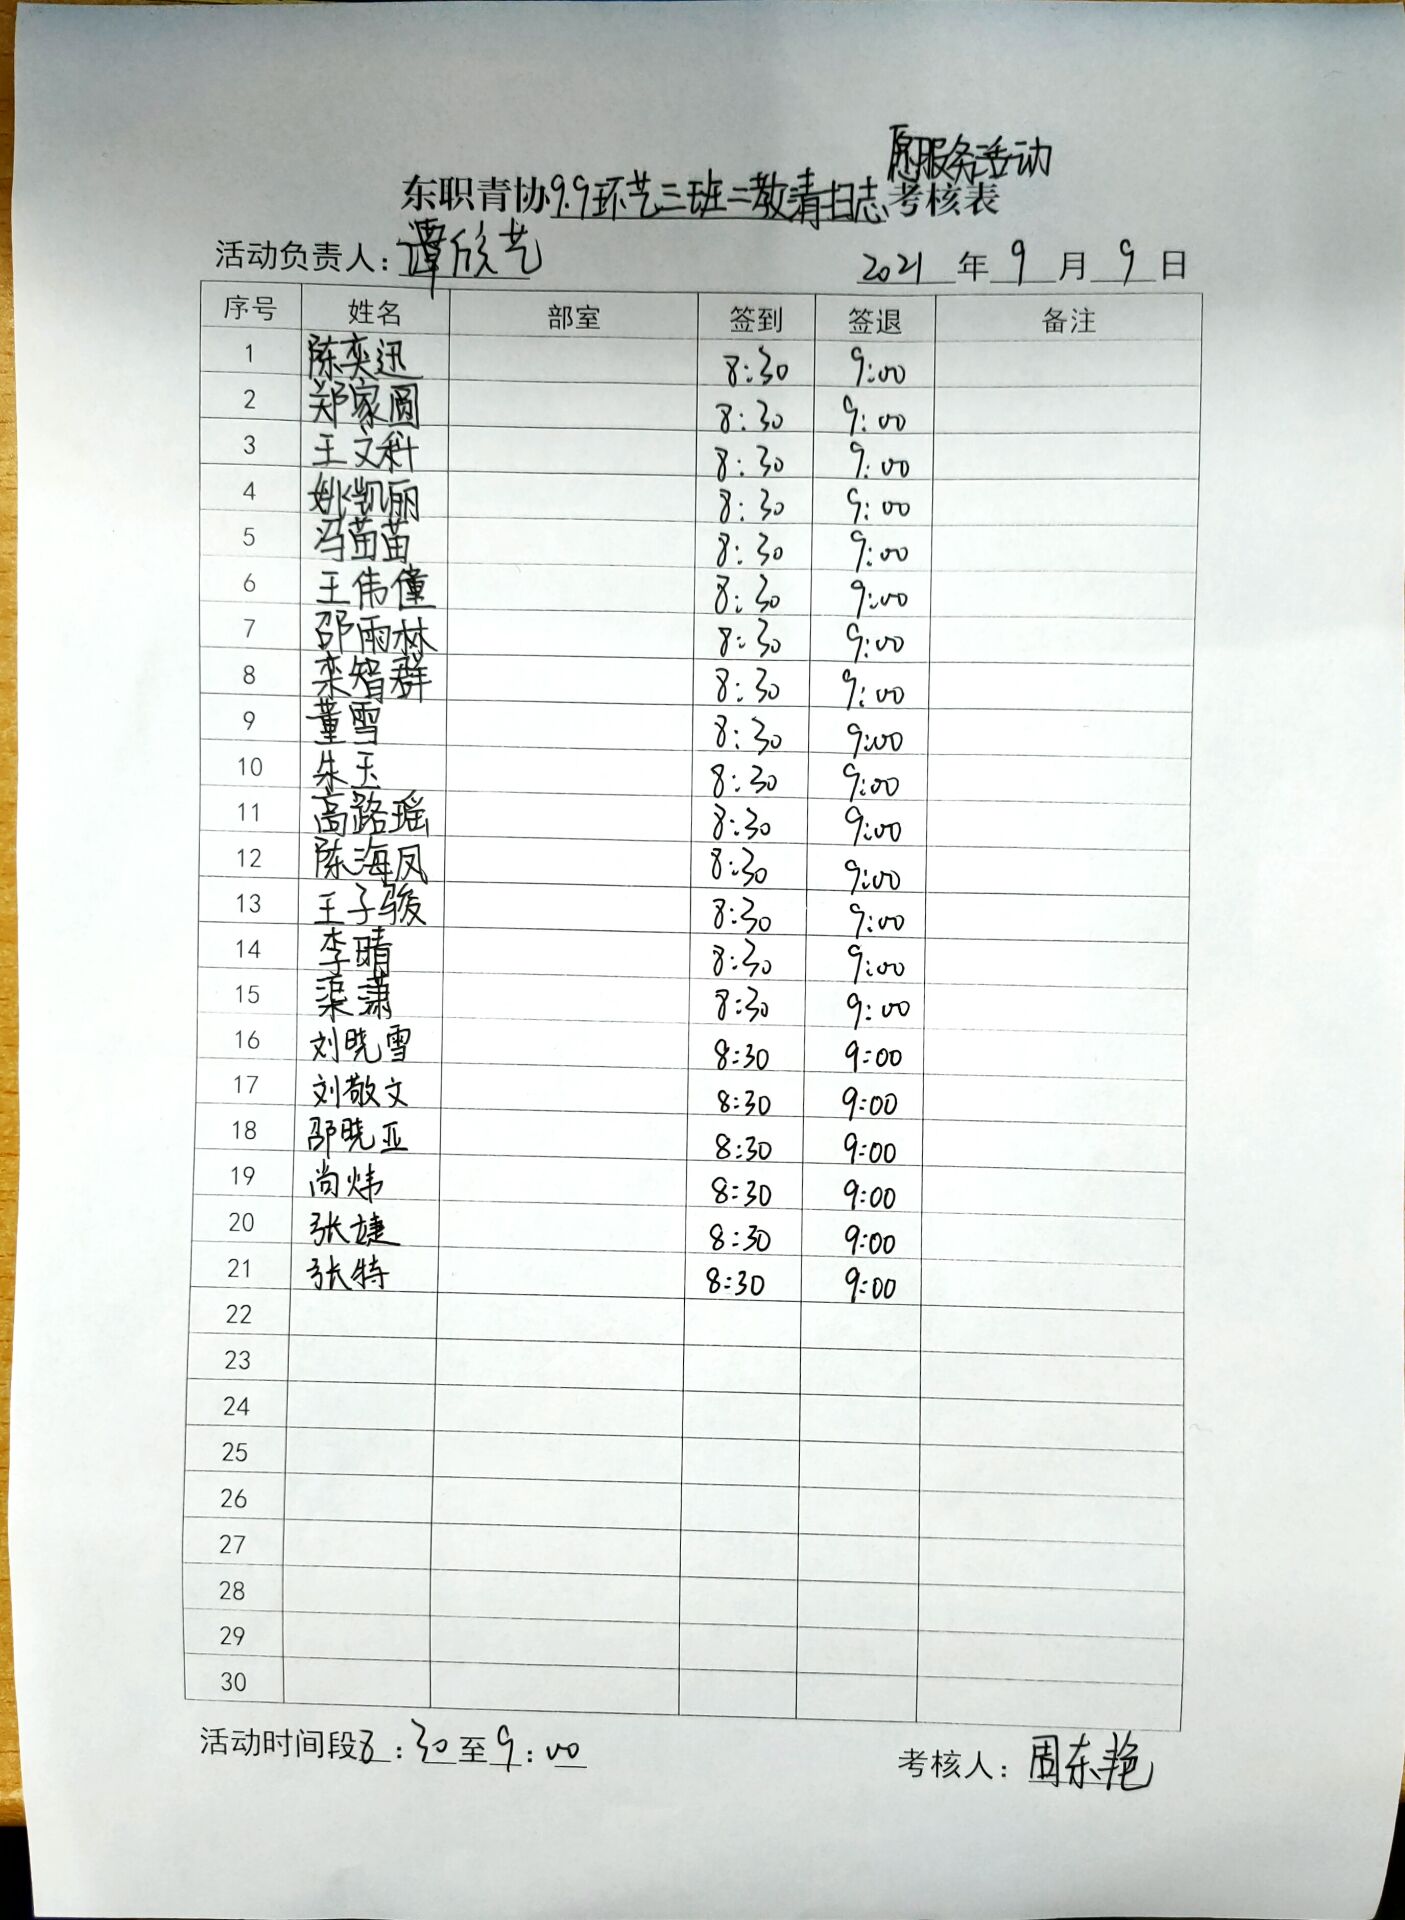 愿服务活动
东职青协9.9环艺三班二教清扫志考核表
活动负责人：谭欣艺 2021 年 9 月 9 日
序号 姓名 部室 签到 签退 备注
1 陈奕迅 8:30 9:00
2 郑家圆 8:30 9:00
3 王文科 8:30 9:00
4 姚凯丽 8:30 9:00
5 冯苗苗 8:30 9:00
6 王伟僮 8:30 9:00
7 邵雨林 8:30 9:00
8 栾智群 8:30 9:00
9 董雪 8:30 9:00
10 朱玉 8:30 9:00
11 高路瑶 8:30 9:00
12 陈海凤 8:30 9:00
13 王子骏 8:30 9:00
14 李晴 8:30 9:00
15 渠潇 8:30 9:00
16 刘晓雪 8:30 9:00
17 刘敬文 8:30 9:00
18 邵晓亚 8:30 9:00
19 尚炜 8:30 9:00
20 张婕 8:30 9:00
21 张特 8:30 9:00
22
23
24
25
26
27
28
29
30
活动时间段8:30至9:00 考核人：周东艳